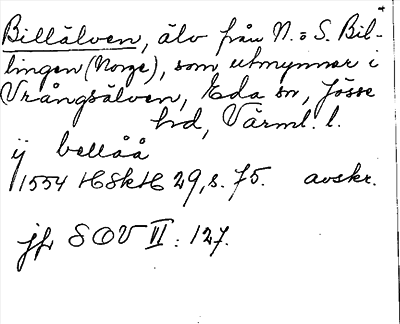 Billälven, älv från N. o S. Bil-
lingen (Norge), som utmynnar i
Vrångsälven, Eda sn, Jösse
hd, Värml. l.
ij bellåå
1554 HSkH 29, s. 75. avskr.
jfr SOV II: 127.